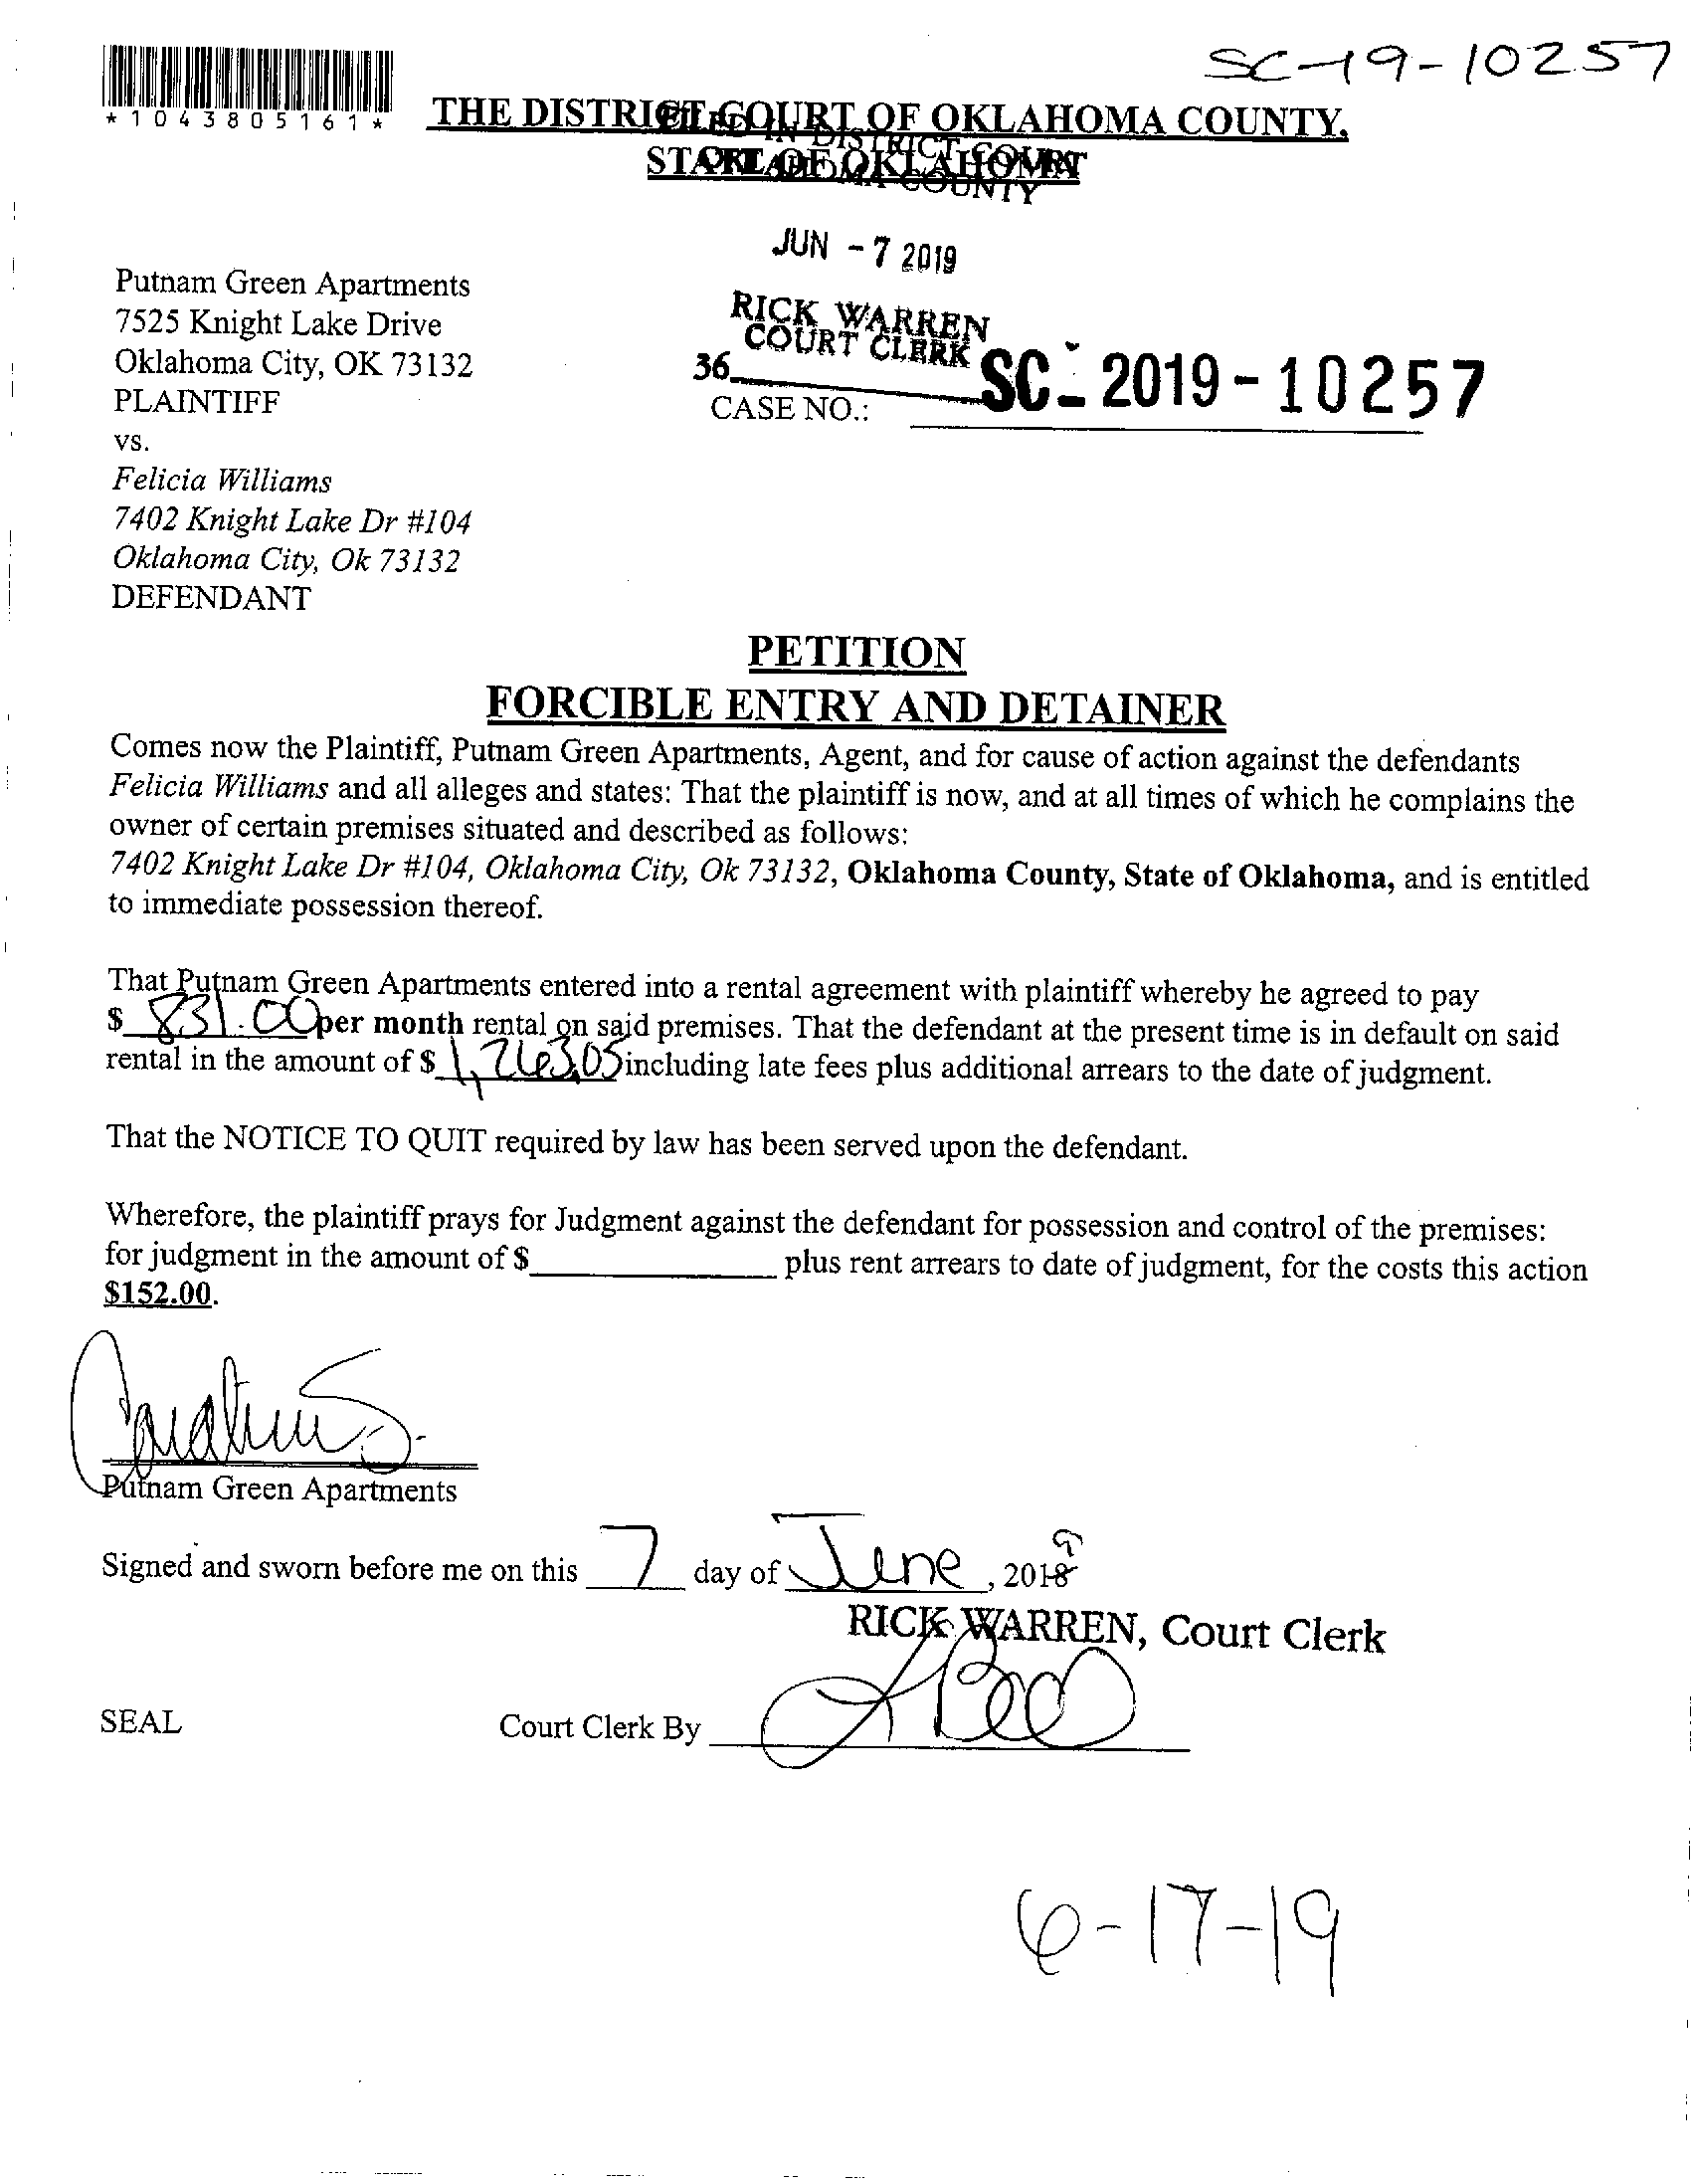 SC-19-10257
*1043805161*
THE DISTRICT COURT OF OKLAHOMA COUNTY,
STATE OF OKLAHOMA
FILED IN DISTRICT COURT
OKLAHOMA COUNTY
JUN -7 2019
RICK WARREN
COURT CLERK
36
Putnam Green Apartments
7525 Knight Lake Drive
Oklahoma City, OK 73132
PLAINTIFF
CASE NO.: SC-2019-10257
vs.
Felicia Williams
7402 Knight Lake Dr #104
Oklahoma City, Ok 73132
DEFENDANT
PETITION
FORCIBLE ENTRY AND DETAINER
Comes now the Plaintiff, Putnam Green Apartments, Agent, and for cause of action against the defendants
Felicia Williams and all alleges and states: That the plaintiff is now, and at all times of which he complains the
owner of certain premises situated and described as follows:
7402 Knight Lake Dr #104, Oklahoma City, Ok 73132, Oklahoma County, State of Oklahoma, and is entitled
to immediate possession thereof.
That Putnam Green Apartments entered into a rental agreement with plaintiff whereby he agreed to pay
$ 831.00 per month rental on said premises. That the defendant at the present time is in default on said
rental in the amount of $ 1,263.05 including late fees plus additional arrears to the date of judgment.
That the NOTICE TO QUIT required by law has been served upon the defendant.
Wherefore, the plaintiff prays for Judgment against the defendant for possession and control of the premises:
for judgment in the amount of $ plus rent arrears to date of judgment, for the costs this action
$152.00.
Putnam Green Apartments
Signed and sworn before me on this 7 day of June, 2019
RICK WARREN, Court Clerk
SEAL
Court Clerk By
6-17-19